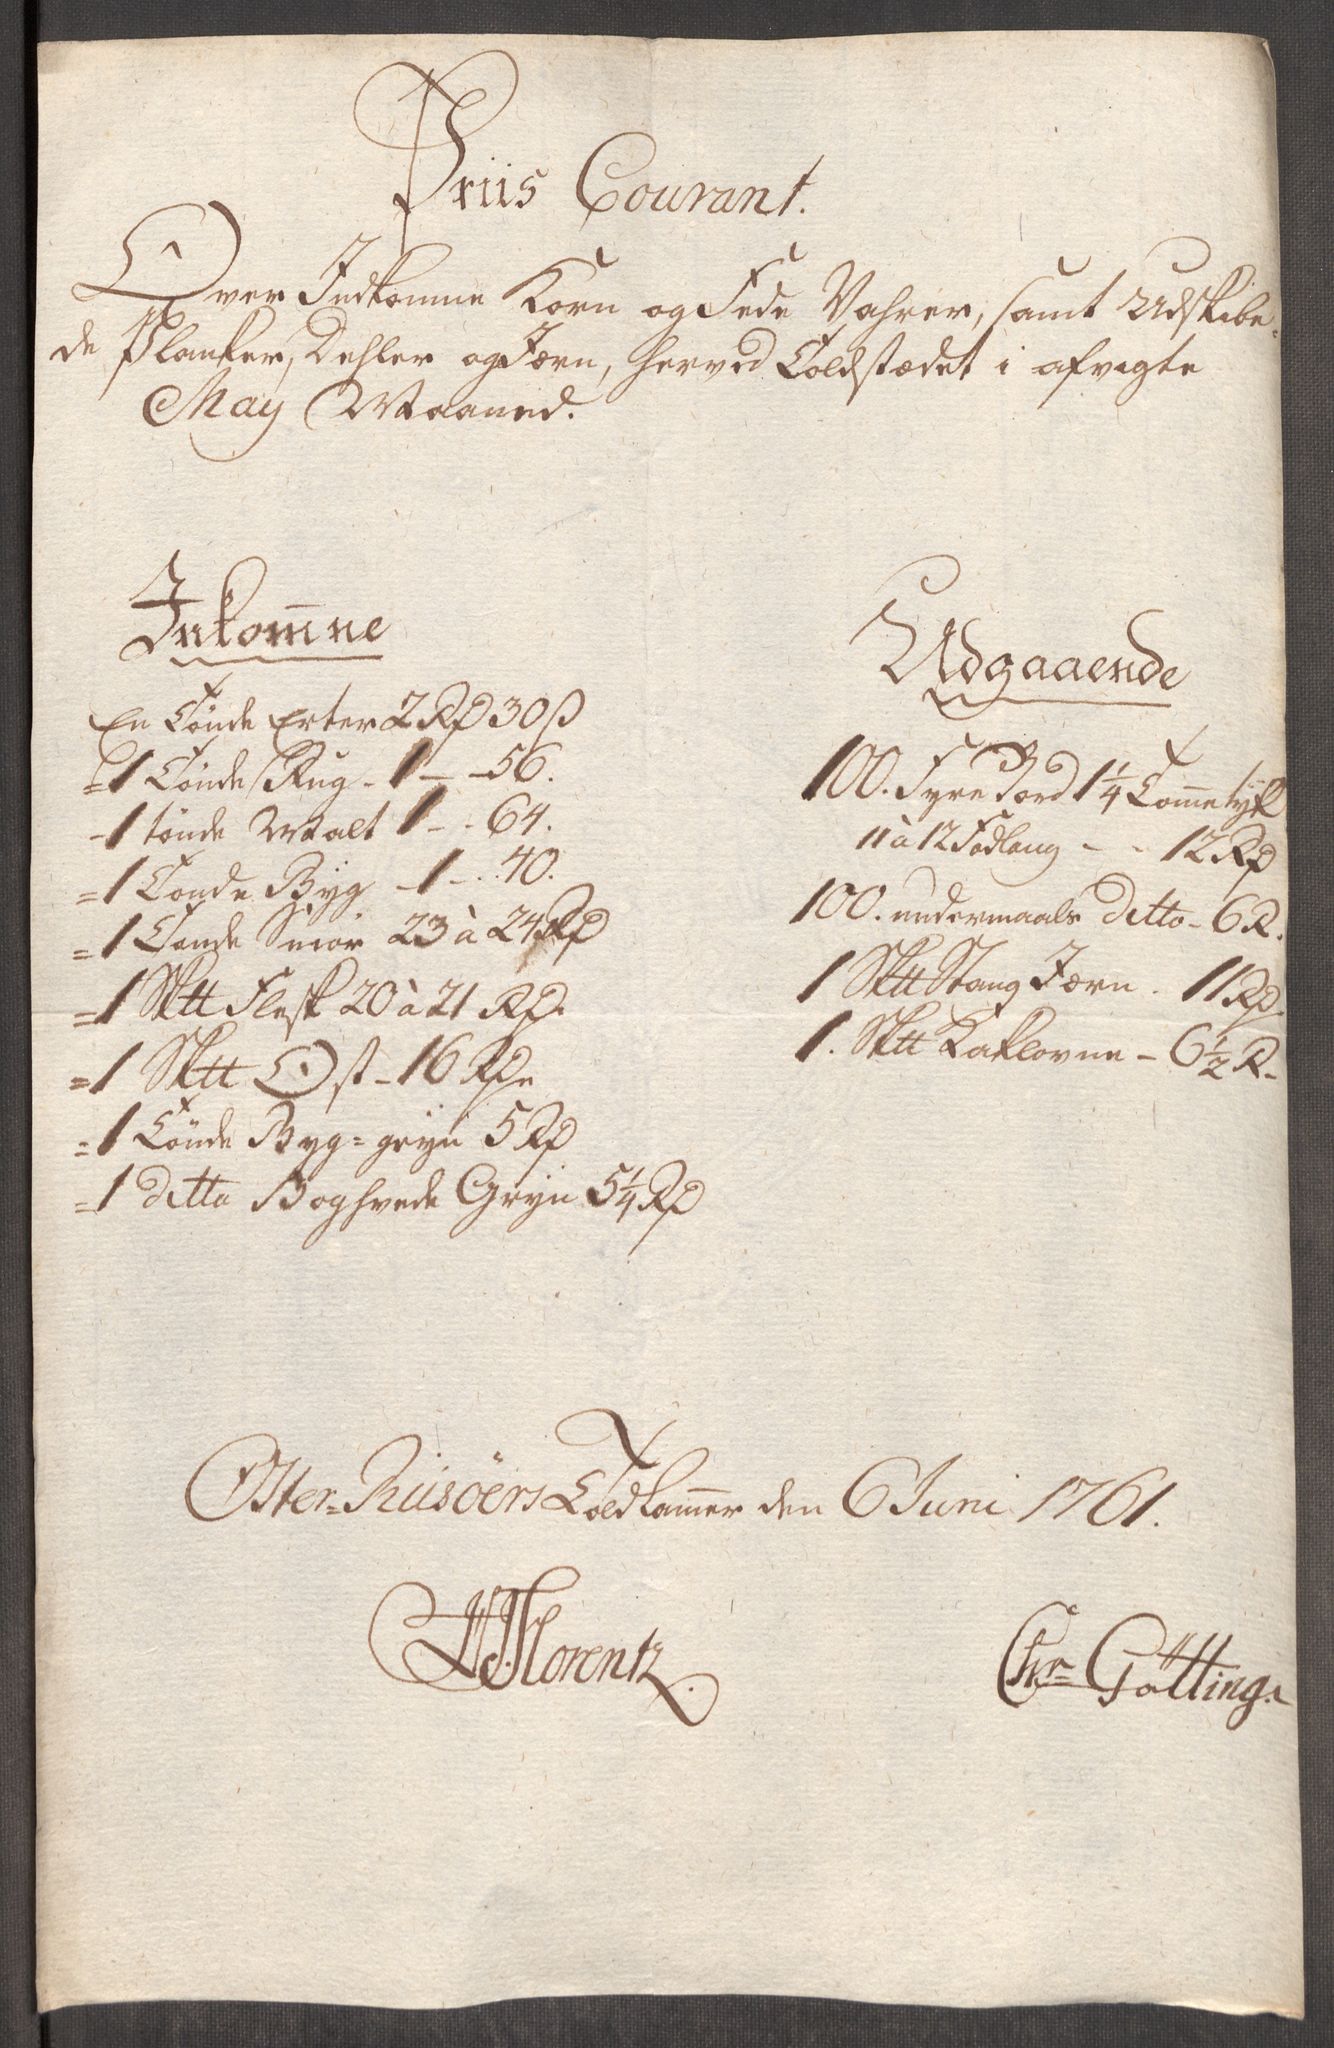 Priis Courant.
Over Indkomne Korn og Fede Vahrer, samt Udskibe-
de Planker, Dehler og Jern, herved Toldstædet i afvigte
May Maaned.
Inkom̄ne
En Tönde Erter 2 Rd 30 ß
=1 Tönde Rug - 1 - 56.
-1 tönde Malt 1 - 64.
=1 Tönde Byg - 1 - 40.
=1 Tönde Smör 23 à 24 Rd
=1 Sk℔ Flesk 20 à 21 Rd.
=1 Sk℔ Ost - 16 Rd
=1 Tönde Byg=gryn 5 Rd
=1 ditto Boghvede Gryn 5 1/4 Rd
Udgaaende
100. Fyre Bord 1 1/4 Tomme tyk
11 à 12 Fod lang - - 12 Rd
100. undermaals ditto - 6 R.
1 Sk℔ Stang Jern. 11 Rd.
1. Sk℔ Kaklovne - 6 1/2 R.
Öster-Riisöers Toldkam̄er den 6 Juni 1761.
Florentz.
Chr. Götting.